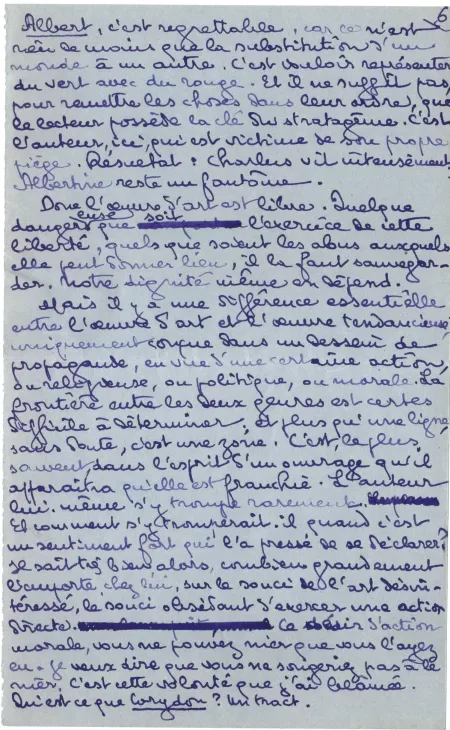 6
Albert, c'est regrettable, car ce n'est
rien de moins que la substitution d'un
monde à un autre. C'est vouloir représenter
du vert avec du rouge. Et il ne suffit pas,
pour remettre les choses dans leur ordre, que
le lecteur possède la clé du stratagème. C'est
l'auteur, ici, qui est victime de son propre
piège. Résultat : Charlus vit intensément
Albertine reste un fantôme.
Donc l'œuvre d'art est libre. Quelque
dangereuse que soit l'exercice de cette
liberté, quels que soient les abus auxquels
elle peut donner lieu, il la faut sauvegar-
der. Notre dignité même en dépend.
Mais il y a une différence essentielle
entre l'œuvre d'art et l'œuvre tendancieuse
uniquement conçue dans un dessein de
propagande, en vue d'une certaine action,
ou religieuse, ou politique, ou morale. La
frontière entre les deux genres est certes
difficile à déterminer, et plus qu'une ligne
sans doute, c'est une zone. C'est, le plus
souvent dans l'esprit d'un ouvrage qu'il
apparaîtra qu'elle est franchie. L'auteur
lui-même s'y trompe rarement.
Et comment s'y tromperait-il quand c'est
un sentiment fort qui l'a pressé de se déclarer?
Je sais très bien alors, combien grandement
l'emporte, chez lui, sur le souci de l'art désin-
téressé, le souci obsédant d'exercer une action
directe. Ce désir d'action
morale, vous ne pouvez nier que vous l'ayez
eu. Je veux dire que vous ne songeriez pas à le
nier. C'est cette volonté que j'ai blâmée.
Qu'est ce que Corydon? Un tract.